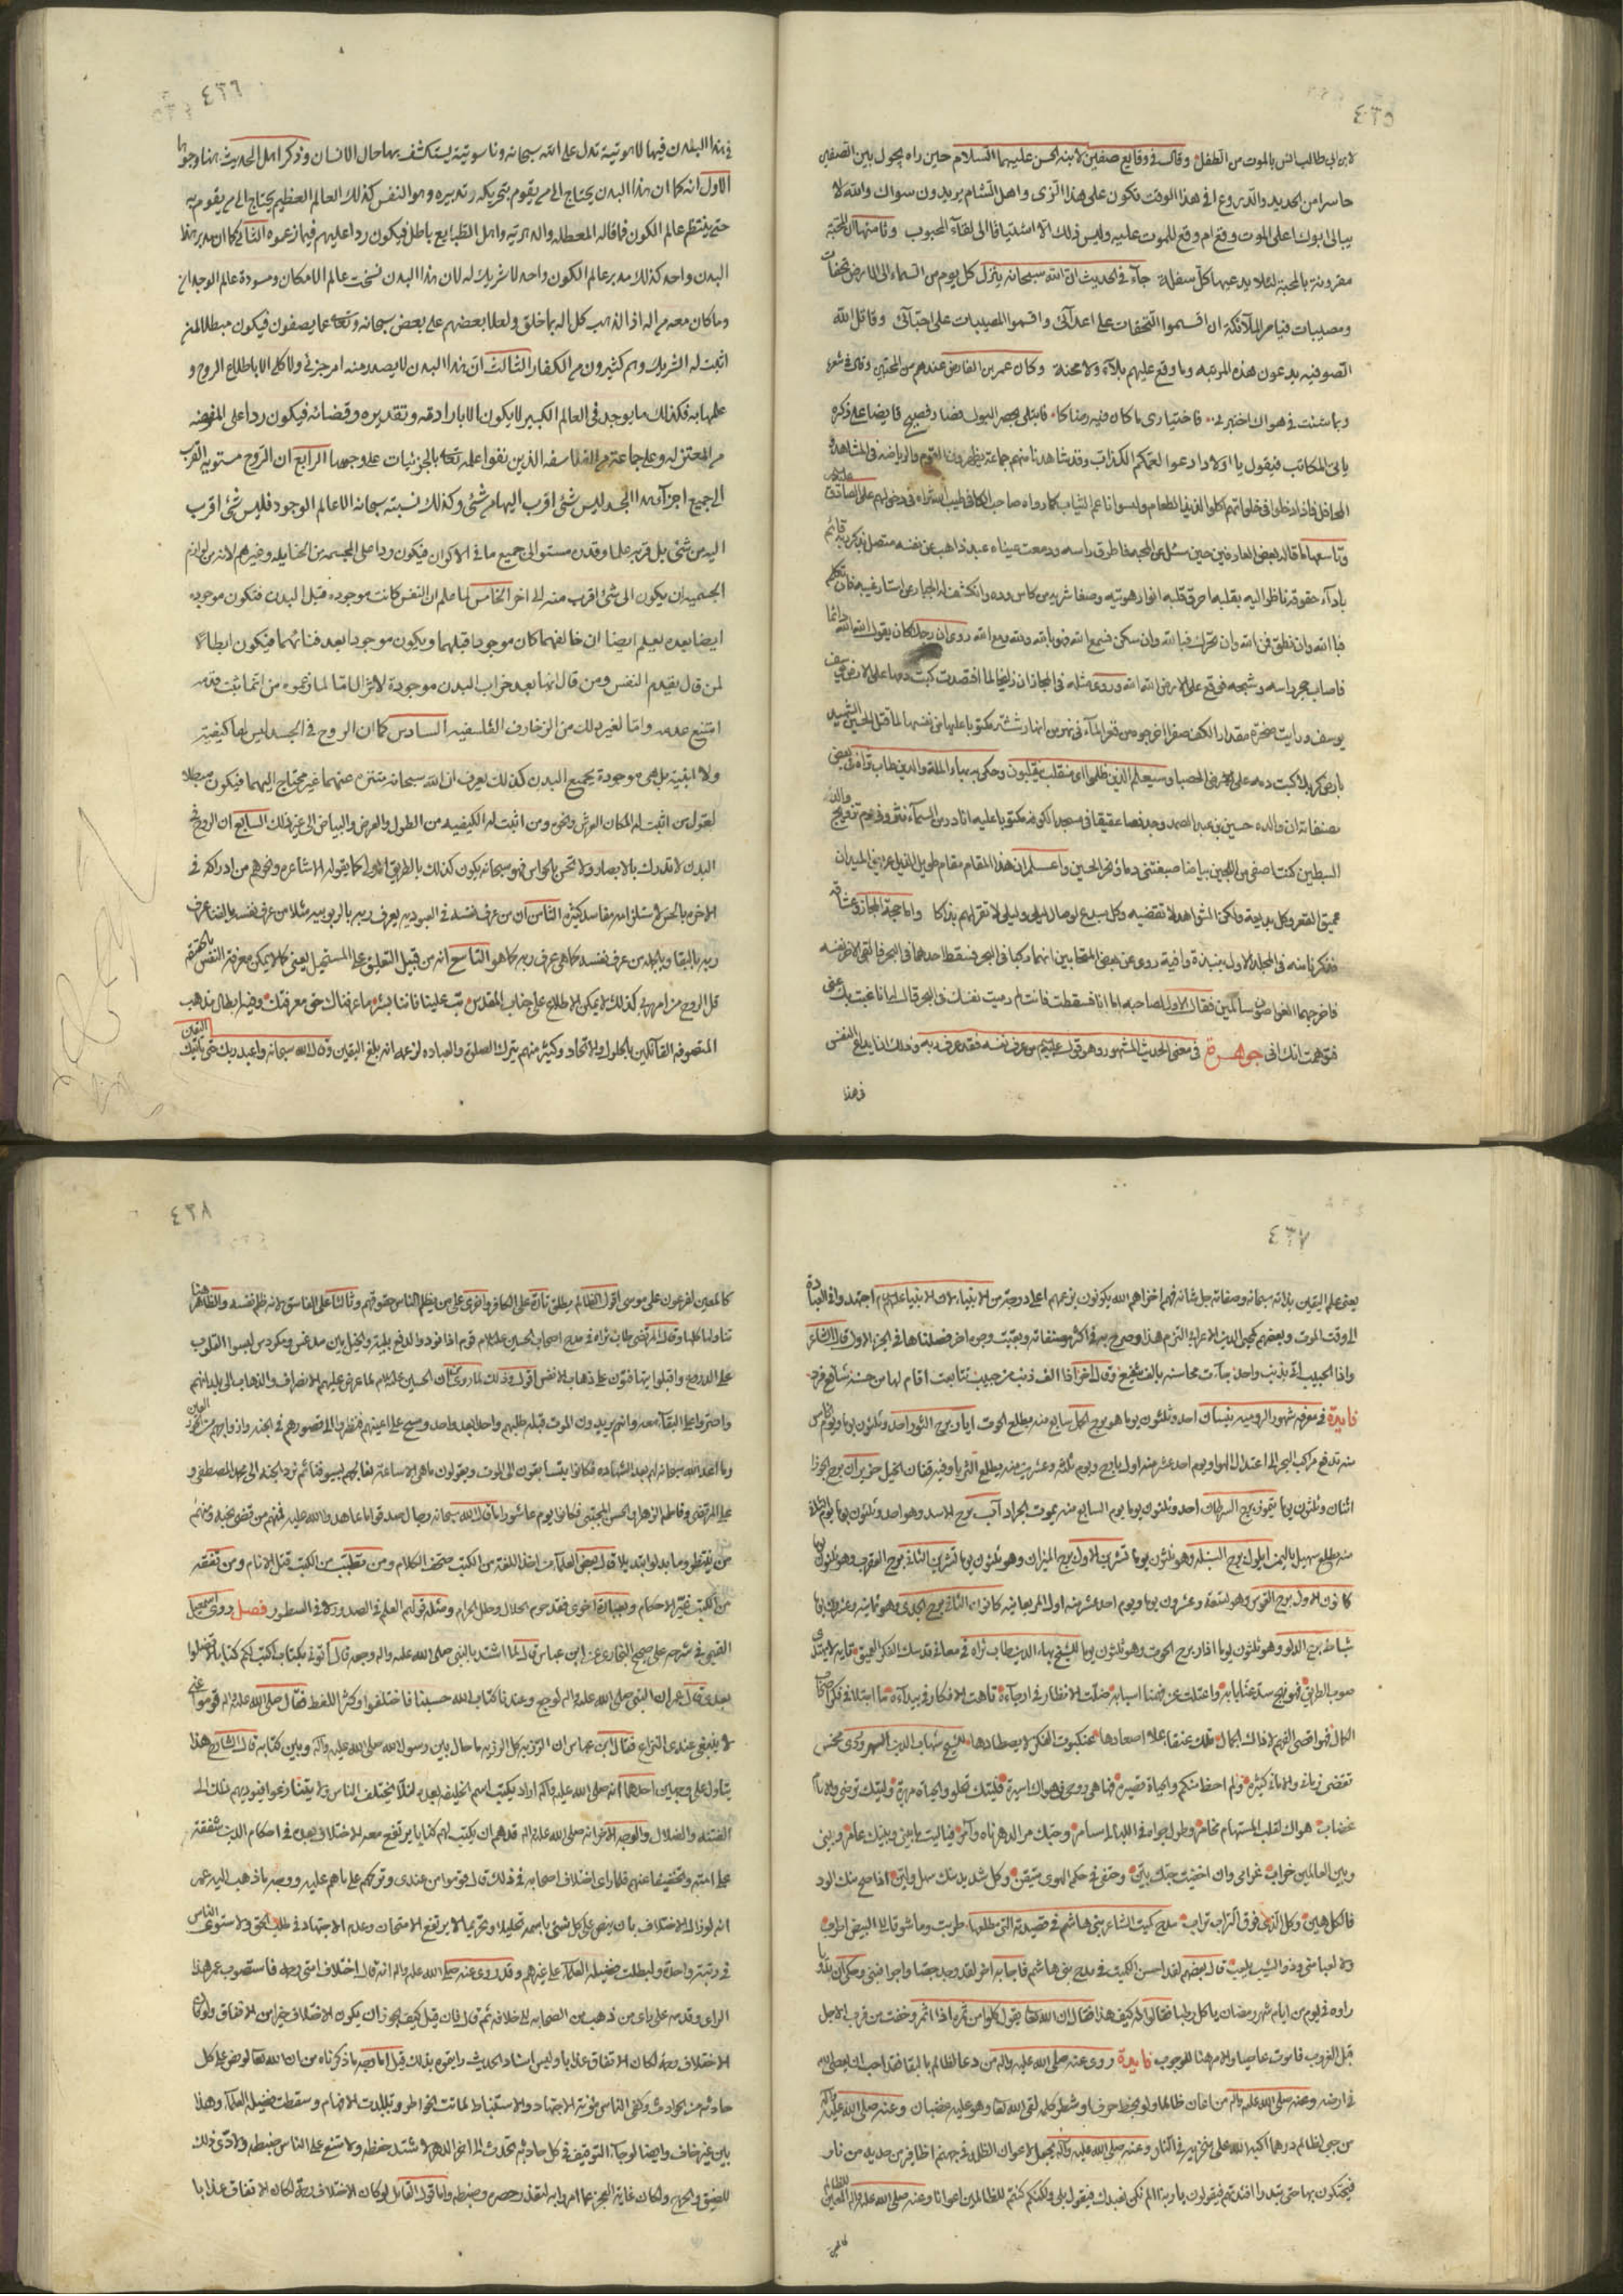 ٤٣٥
لابن ابی طالب انس بالموت من الطفل وقال فی وقایع صفین لابنه الحسن علیهما السلام حین راه یجول بین الصفین
حاسرا من الحدید والدروع افی هذا الوقت تکون علی هذا الزی واهل الشام یریدون سواک والله لا
یبالی ابوک اعلی الموت وقع ام وقع الموت علیه ولیس ذلک الا اشتیاقا الی لقاء المحبوب وثامنها ان المحبة
مقرونة بالمحنة لئلا یدعیها کل سفلة جاء فی الحدیث ان الله سبحانه ینزل کل یوم من السماء الی الارض تحفات
ومصیبات فیامر الملائکة ان اقسموا التحفات علی اعدائی واقسموا المصیبات علی احبائی وقاتل الله
الصوفیه یدعون هذه المرتبه وما وقع علیهم بلاء ولا محنة وکان عمر بن الفارض عندهم من المحبین وقال فی شعره
وبما شئت فی هواک اختبرنی فاختیاری ما کان فیه رضاکا فابتلی بحصر البول فصار
یاتی المکاتب فیقول یا اولاد ادعوا لعمکم الکذاب وقد شاهدنا منهم جماعة یظهرون
المحافل فاذا دخلوا فی خلواتهم اکلوا لذیذ الطعام ولبسوا ناعم الثیاب کما رواه صاحب الکافی
وتاسعها ما قاله بعض العارفین حین سئل عن المحبه فاطرق راسه ودمعت عیناه عبد ذاهب عن نفسه متصل بذکر ربه قائم
باداء حقوقه ناظر الیه بقلبه احرق قلبه انوار هویته وصفا شربه من کاس وده وانکشف له الجبار عن استار غیبه فان تکلم
فبالله وان نطق فمن الله وان تحرک فبالله وان سکن فمع الله فهو بالله ولله ومع الله روی ان رجلا کان یقول الله الله دائما
فاصاب حجر راسه وشجه فوقع علی الارض الله الله وروی مثله فی المجاز ان زلیخا لما افتصدت کتبت دمها علی الارض یوسف
یوسف ورایت صخرة مقدار الکف صفرا اخرجوه من قعر الماء فی نهر من انهار ششتر مکتوبا علیها من نفسها لما قتل الحسین الشهید
بارض کربلا کتب دمه علی ارض الحصباء وسیعلم الذین ظلموا ای منقلب ینقلبون وحکی بهاء الملة والدین طاب ثراه فی بعض
مصنفاته ان والده حسین بن عبد الصمد وجد فصا عقیقا فی مسجد الکوفه مکتوبا علیه انا در من السماء نثرونی یوم تزویج والد
السبطین کنت اصفی من اللجین بیاضا صبغتنی دماء نحر الحسین واعلم ان هذا المقام مقام طویل الذیل عریض المیدان
عمیق القعر وکل بدایة ولکن الشواهد لا تقتضیه وکل یدعی لوصال لیلی ولیلی لا تقر لهم بذاکا واما محبة المجاز وعشاقه
فذکرنا منه فی المجلد الاول نبذة وافیة روی عن بعض المتحابین انهما رکبا فی البحر فسقط احدهما فی البحر فالقی الاخر نفسه
فاخرجهما الغواصون سالمین فقال الاول لصاحبه اما انا فسقطت فانت لم رمیت نفسک فی البحر قال انا غبت بک عنی
فتوهمت انک انی جوهرة فی معنی الحدیث المشهور وهو قوله من عرف نفسه فقد عرف ربه وذلک
فی هذا
٤٣٦
فی هذا البدن فیها لاهوتیة تدل علی الله سبحانه وناسوتیة یستکشف بها حال الانسان وذکر اهل الحدیث هنا وجوها
الاول انه کما ان هذا البدن یحتاج الی من یقوم بتحریکه وتدبیره وهو النفس کذلک العالم العظیم یحتاج الی من یقوم به
حتی ینتظم عالم الکون فما قاله المعطله والدهریه واهل الطبایع باطل فیکون ردا علیهم فیما زعموه الثانی کما ان مدبر هذا
البدن واحد کذلک مدبر عالم الکون واحد لا شریک له لان هذا البدن نسخت عالم الامکان ومسودة عالم الوجدان
وما کان معه من اله اذا لذهب کل اله بما خلق ولعلا بعضهم علی بعض سبحانه وتعالی عما یصفون فیکون مبطلا لمن
اثبت له الشریک وهم کثیرون من الکفار الثالث ان هذا البدن لا یصدر منه امر جزئی ولا کلی الا باطلاع الروح و
علمها به فکذلک ما یوجد فی العالم الکبیر لا یکون الا بارادته وتقدیره وقضائه فیکون ردا علی المفوضه
من المعتزله وعلی جماعة من الفلاسفه الذین نفوا علمه تعالی بالجزئیات علی وجهها الرابع ان الروح مستویه القرب
الی جمیع اجزاء هذا الجسد لیس شئ اقرب الیها من شئ وکذلک نسبته سبحانه الا عالم الوجود فلیس شئ اقرب
الیه من شئ بل قربه علما وقدرة مستو الی جمیع ما فی الاکوان فیکون ردا علی المجسمه من الحنابله وغیرهم لانه من لوازم
الجسمیة ان یکون الی شئ اقرب منه الی اخر الخامس لما علم ان النفس کانت موجوده قبل البدن فتکون موجوده
ایضا بعده یعلم ایضا ان خالقهما کان موجودا قبلهما ویکون موجودا بعد فنائهما فیکون ابطالا
لمن قال بقدم النفس ومن قال انها بعد خراب البدن موجودة لا تزال اما لما زعموه من انما ثبت قدمه
امتنع عدمه واما لغیر ذلک من الزخارف الفلسفیه السادس کما ان الروح فی الجسد لیس لها کیفیة
ولا اینیة بل هی موجودة بجمیع البدن کذلک یعرف ان الله سبحانه متنزه عنهما غیر محتاج الیهما فیکون مبطلا
لقول من اثبت له المکان العرش ونحوه ومن اثبت له الکیفیه من الطول والعرض والبیاض الی غیر ذلک السابع ان الروح فی
البدن لا تدرک بالابصار ولا تحس بالحواس فهو سبحانه یکون کذلک بالطریق الاولی کما یقوله الاشاعره ونحوهم من ادراکه فی
الاخره بالحس لاستلزامه مفاسد کثیره الثامن ان من عرف نفسه فی العبودیه یعرف ربه بالربوبیه مثلا من عرف نفسه بالفنا عرف
ربه بالبقا وبالجمله من عرف نفسه کما هی عرف ربه کما هو التاسع انه من قبیل التعلیق علی المستحیل یعنی کما لا یمکن معرفة النفس بالحقیقه
قل الروح من امر ربی کذلک لا یمکن الاطلاع علی جناب المقدس تب علینا فاننا بشر ما عرفناک حق معرفتک وفیه ابطال مذهب
المتصوفه القائلین بالحلول والاتحاد وکثیر منهم یترک الصلوة والعباده لزعمه انه بلغ الیقین وقال الله سبحانه واعبد ربک حتی یاتیک الیقین
٤٣٧
یعنی علم الیقین بذاته سبحانه وصفاته جل شانه فهم اخزاهم الله یکونون بزعمهم اعلی درجة من الانبیاء لان الانبیاء علیهم السلام اجتهدوا فی العبادة
الی وقت الموت وبعضهم کمحیی الدین الاعرابی التزم هذا وصرح به فی اکثر مصنفاته وبقیت وجوه اخر فصلناها فی الجزء الاول قال الشاعر
واذا الحبیب اتی بذنب واحد جاءت محاسنه بالف شفیع وقال اخر اذا الف ذنب من حبیب تتابعت اقام لها من حسنه شافع فرد
فایدة فی معرفة شهور الرومیه نیسان احد وثلثون یوما هو برج الحمل سابع منه یطلع الحوت ایار برج الثور احد وثلثون یوما ویوم الخامس
منه تدفع مراکب البحر الی اعتدال الهوا ویوم احد عشر منه اول باحور ویوم ثلثة وعشرین منه یطلع الثریا وفیه قفان الخیل حزیران برج الجوزا
اثنان وثلثون یوما تموز برج السرطان احد وثلثون یوما یوم السابع منه یموت الجراد آب برج الاسد وهو احد وثلثون یوما یوم الثالث
منه یطلع سهیل بالیمن ایلول برج السنبله وهو ثلثون یوما تشرین الاول برج المیزان وهو ثلثون یوما تشرین الثانی برج العقرب وهو ثلثون یوما
کانون الاول برج القوس وهو تسعة وعشرون یوما ویوم احد عشر منه اول المربعانیه کانون الثانی برج الجدی وهو ثمانیه وعشرون یوما
شباط برج الدلو وهو ثلثون یوما اذار برج الحوت وهو ثلثون یوما للشیخ بهاء الدین طاب ثراه فی معانی
تقضی زمانی والامانی کثیرة ولم احظ منکم والحیاة قصیرة فها هی روحی فی هواک اسیرة فلیتک تحلو والحیاة مریرة ولیتک ترضی والانام
غضاب هواک لقلب المستهام مخامر وطول جواه فی اللیالی مسامر وحبک مر الدهر ناه وآمر فیالیت ما بینی وبینک عامر وبینی
وبین العالمین خراب غرامی وان اخفیت حبک بین وحتفی فی حکم الهوی متیقن وکل شدید منک سهل ولین اذا صح منک الود
فالکل هین وکل الذی فوق التراب تراب مدح کمیت الشاعر بنی هاشم فی قصیدته التی مطلعها طربت وما شوقا الی البیض اطرب
ولا لعبا منی وذو الشیب یلعب قال بعضهم لقد احسن الکمیت فی مدح بنی هاشم فاجابه اخر لقد وجد جصا واجرا فبنی
راوه فی یوم من ایام شهر رمضان یاکل رطبا فقالوا له کیف هذا فقال ان الله تعالی یقول کلوا من ثمره اذا اثمر وخفت من قرب الاجل
قبل الغروب فاموت عاصیا والامر هنا للوجوب فایدة روی عنه صلی الله علیه واله من دعا لظالم بالبقا فقد احب ان یعصی الله
فی ارضه وعنه صلی الله علیه واله من اعان ظالما ولو بخط حرف او شطر کلمه لقی الله تعالی وهو علیه غضبان وعنه صلی الله علیه واله
من جبی لظالم درهما اکبه الله علی منخریه فی النار وعنه صلی الله علیه وآله یجعل لاعوان الظلمه فی جهنم اظافیر من حدید من نار
فیحکون بها حتی تبدو افئدتهم فیقولون یا ربنا الم نکن نعبدک فیقول بلی ولکنکم کنتم للظالمین اعوانا وعنه صلی الله علیه واله المعین للظالم
کالمعین
٤٣٨
کالمعین لفرعون علی موسی اقول الظالم یطلق تارة علی الکافر واخری علی من یظلم الناس حقوقهم وثالثا علی الفاسق لانه ظلم نفسه والظاهر هنا
تناولها کلها وقال المرتضی طاب ثراه فی مدح اصحاب الحسین علیه السلام قوم اذا نودوا لدفع ملمة والخیل بین مدعس ومکردس لبسوا القلوب
علی الدروع واقبلوا یتهافتون علی ذهاب الانفس اقول وذلک لما روی ان الحسین علیه السلام لما عرض علیهم الانصراف والذهاب الی بلدانهم
واختاروا البقاء معه وانهم یریدون الموت قبله طلبهم واحدا بعد واحد ومسح علی اعینهم فنظروا الی قصورهم فی الجنه
وما اعد الله سبحانه لهم بعد الشهاده فکانوا یتسابقون الی الموت ویقولون ما هی الا ساعة نعانقهم بسیوفنا ثم نرد الجنه الی محمد المصطفی و
علی المرتضی وفاطمه الزهرا والحسن المجتبی فکانوا یوم عاشورا ما قال الله سبحانه رجال صدقوا ما عاهدوا الله علیه فمنهم من قضی نحبه ومنهم
من ینتظر وما بدلوا تبدیلا قال بعض العلماء من اخذ اللغة من الکتب صحف الکلام ومن تطبب من الکتب قتل الانام ومن تفقه
من الکتب غیر الاحکام وبعبارة اخری فقد حرم الحلال وحلل الحرام ومثله قولهم العلم فی الصدور لا فی السطور فصل روی
فی شرحه علی صحیح البخاری عن ابن عباس قال لما اشتد بالنبی صلی الله علیه واله وجعه قال آتونی بکتاب اکتب لکم کتابا لا تضلوا
بعدی قال عمر ان النبی صلی الله علیه واله لوجع وعندنا کتاب الله حسبنا فاختلفوا وکثر اللغط فقال صلی الله علیه واله قوموا عنی
لا ینبغی عندی النزاع فقال ابن عباس ان الرزیه کل الرزیه ما حال بین رسول الله صلی الله علیه وآله وبین کتابه قال الشارح هذا
یتاول علی وجهین احدهما انه صلی الله علیه وآله اراد یکتب اسم الخلیفه بعده لئلا یختلف الناس ولا یتنازعوا فیودیهم ذلک الی
الفتنه والضلال والوجه الاخر انه صلی الله علیه واله قد هم ان یکتب لهم کتابا یرتفع معه الاختلاف بعده فی احکام الدین شفقة
علی امته وتخفیفا عنهم فلما رای اختلاف اصحابه فی ذلک قال قوموا من عندی وترکهم علی ما هم علیه ووجه ما ذهب الیه عمر
انه لو زال الاختلاف بان ینص علی کل شئ باسمه تحلیلا وتحریما لا یرتفع الامتحان وعدم الاجتهاد فی طلب الحق ولاستوی الناس
فی رتبة واحدة ولبطلت فضیله العلماء علی غیرهم وقد روی عنه صلی الله علیه واله انه قال اختلاف امتی رحمه فاستصوب عمر هذا
الرای وقدمه علی رای من ذهب من الصحابه الی خلافه ثم قال فان قیل کیف یجوز ان یکون الاختلاف خیرا من الاتفاق ولو کان
الاختلاف رحمة لکان الاتفاق عذابا ولیس اسناد الحدیث بذلک قیل اما وجه ما ذکرناه من ان الله تعالی لو نص علی کل
حادثه من الحوادث وکفی الناس مونة الاجتهاد والاستنباط لماتت الخواطر وتبلدت الافهام وسقطت فضیلة العلماء وهذا
بین غیر خاف وایضا لو جاء التوقیف فی کل حادثه تحدث الی اخر الدهر لاشتد حفظه ولامتنع علی الناس ضبطه ولادی ذلک
للضیق والحرج ولکان غایته العجز عما امروا به لتعذر حصره وضبطه واما قول القائل لو کان الاختلاف رحمة لکان الاتفاق عذابا